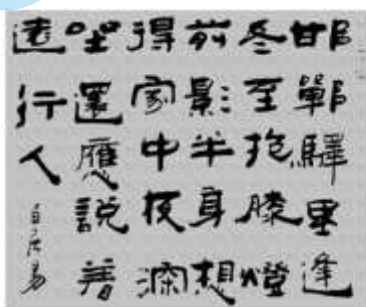 邯鄲驛里逢
冬至抱膝燈
前影半身想
得家中夜深
坐還應説着
遠行人
白居易